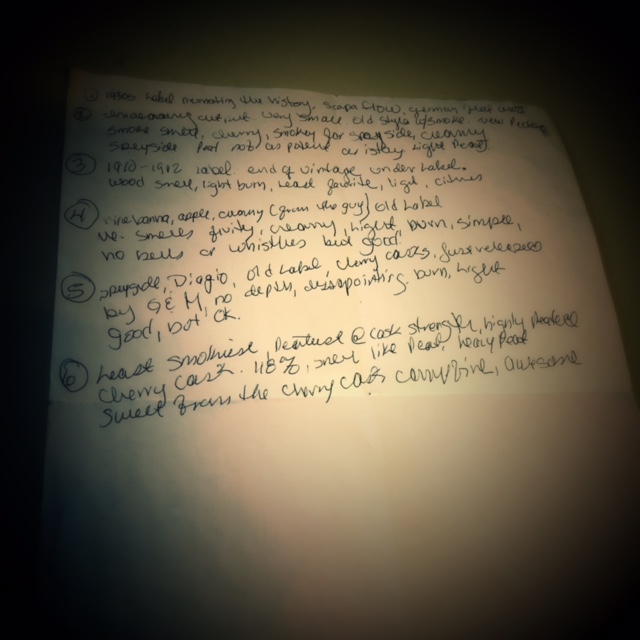 ① 1930s label the history, Scapa Flow, German
② very small old style of smoke. new
smoke smell, cherry, smokey for speyside, creamy
Speyside Peat not as potent as islay Light Peat
③ 1910-1912 label. end of vintage under label.
wood smell, light burn, least favorite, light, citrus
④ apple, creamy (from the guy) old label
me. smells fruity, creamy, light burn, simple,
no bells or whistles but good.
⑤ speyside, Diagio, old label, cherry casks, just released
by G&M, no depth, dissapointing. burn, light
good, but ok.
⑥ Least smokiest, Peatiest @ cask strength, highly Peated
Cherry Cask. 48%, smell like Peat, heavy Peat
Sweet from the cherry cask campfire, awesome